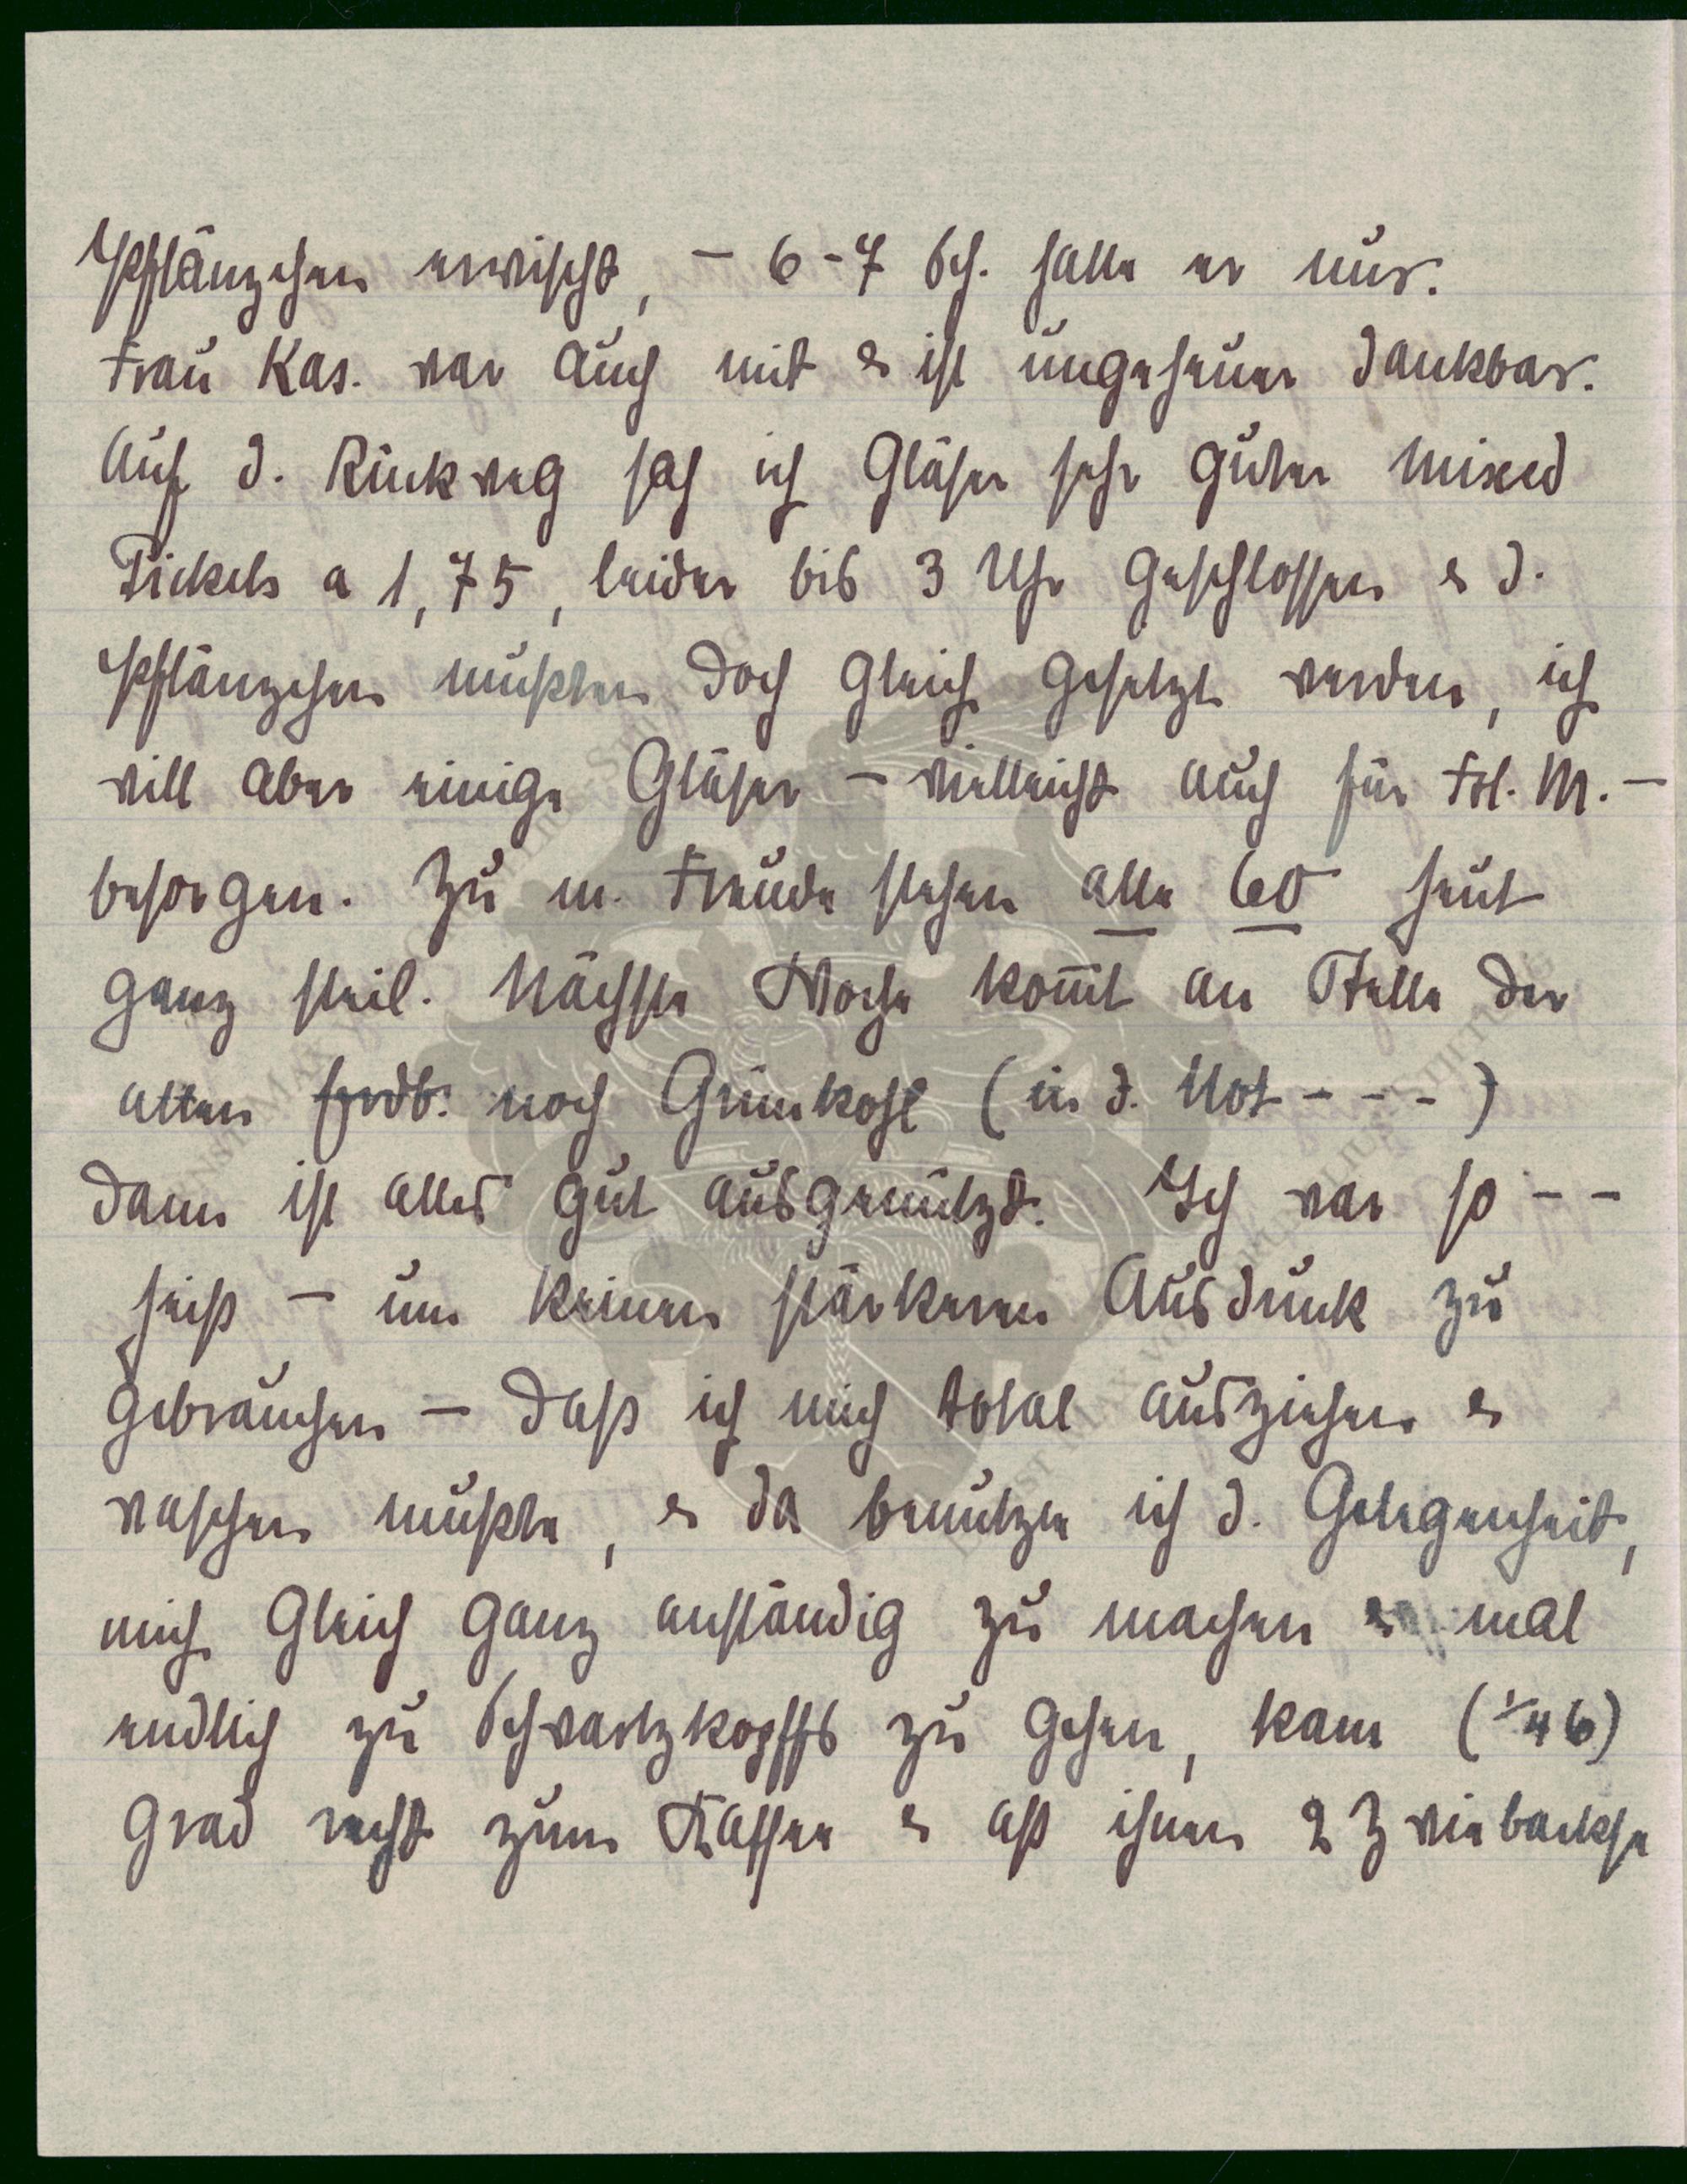 Pflänzchen erwischt, – 6-7 Sch. hatte er nur.
Frau Kas. war auch mit & ist ungeheuer dankbar.
Auf d. Rückweg sah ich Gläser sehr guter Mixed
Pickels a 1,75, leider bis 3 Uhr geschlossen & d.
Pflänzchen mußten doch gleich gesetzt werden, ich
will aber einige Gläser – vielleicht auch für Frl. M. –
besorgen. Zu m. Freude stehen alle 60 heut
ganz steil. Nächste Woche kom̅t an Stelle der
alten Erdb. noch Grünkohl (in d. Not - - - )
dann ist alles gut ausgenützt. Ich war so - -
heiß – um keinen stärkeren Ausdruck zu
gebrauchen – daß ich mich total ausziehen &
waschen mußte, & da benutzte ich d. Gelegenheit,
mich gleich ganz anständig zu machen & mal
endlich zu Schwartzkopffs zu gehen, kam (1/4 6)
grad recht zum Kaffee & aß ihnen 2 Zwiebäckse